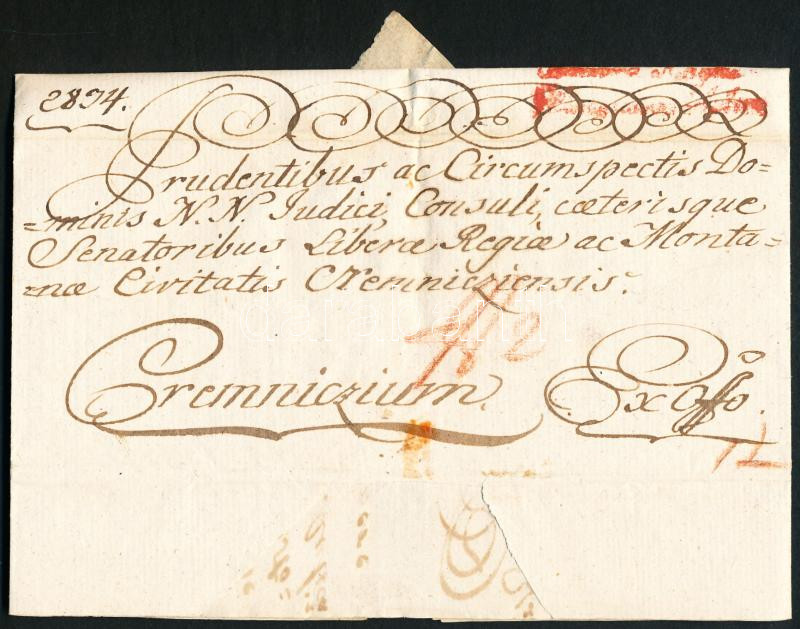 2874.
Prudentibus ac Circumspectis Do=
=minis N. N. Judici, Consuli, cæterisque
Senatoribus Liberæ Regiæ ac Monta=
=næ Civitatis Cremnicziensis.
Cremniczium.
Ex Offo.
12